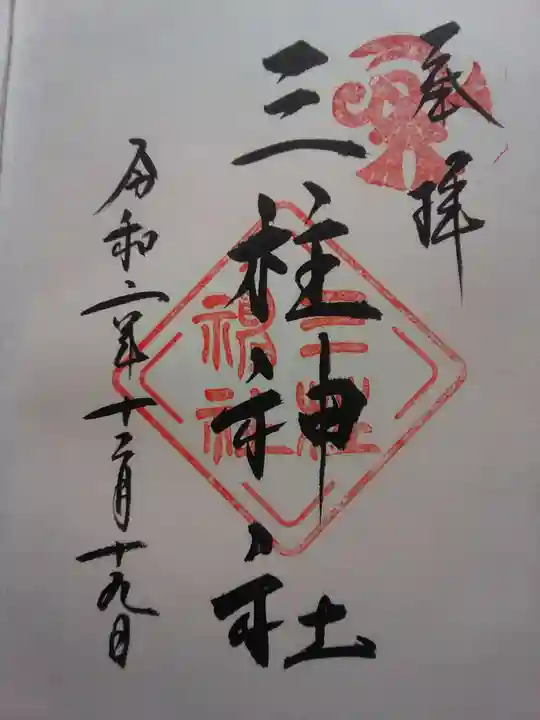 奉拝
三柱神社
三柱
神社
令和二年十二月十九日